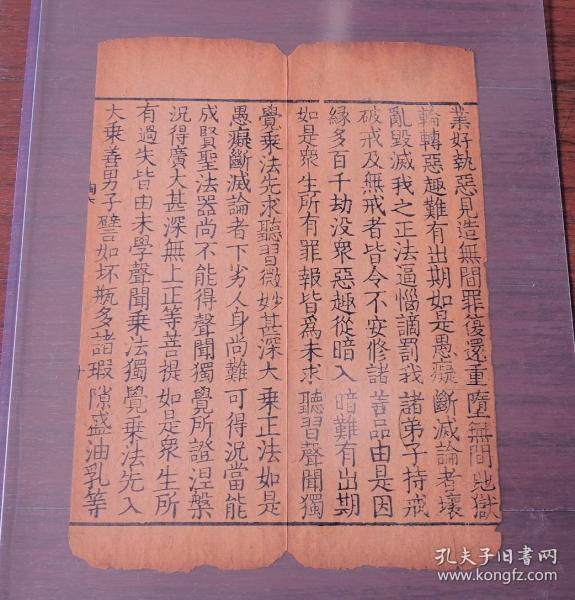 業好執惡見造無間罪復還重墮無間地獄
輪轉惡趣難有出期如是愚癡斷滅論者壞
亂毀滅我之正法逼惱謫罰我諸弟子持戒
破戒及無戒者皆令不安修諸善品由是因
緣多百千劫没衆惡趣從暗入暗難有出期
如是衆生所有罪報皆爲未求聽習聲聞獨
覺乘法先求聽習微妙甚深大乘正法如是
愚癡斷滅論者下劣人身尚難可得況當能
成賢聖法器尚不能得聲聞獨覺所證涅槃
況得廣大甚深無上正等菩提如是衆生所
有過失皆由未學聲聞乘法獨覺乘法先入
大乘善男子譬如坏瓶多諸瑕隙盛油乳等
孔夫子旧书网
www.kongfz.com